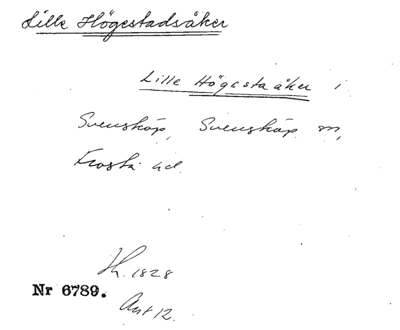 Lille Högestadsåker
Lille Högestaåker i
Svensköp, Svensköp sn,
Frosta hd.
Lh. 1828
Nr 6789.
Akt 12.